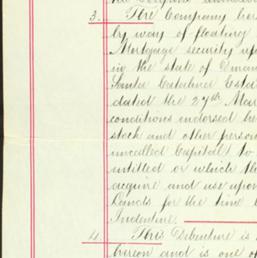 3. The Company her
by way of floating
Mortgage security up
in the state of
Santa Catalina Esta
dated the 27th Mar
conditions endorsed he
stock and other perso
uncalled Capital to
entitled or which th
acquire and use upon
Lands for the time b
Indenture.
4. This Debenture is
hereon and is one o